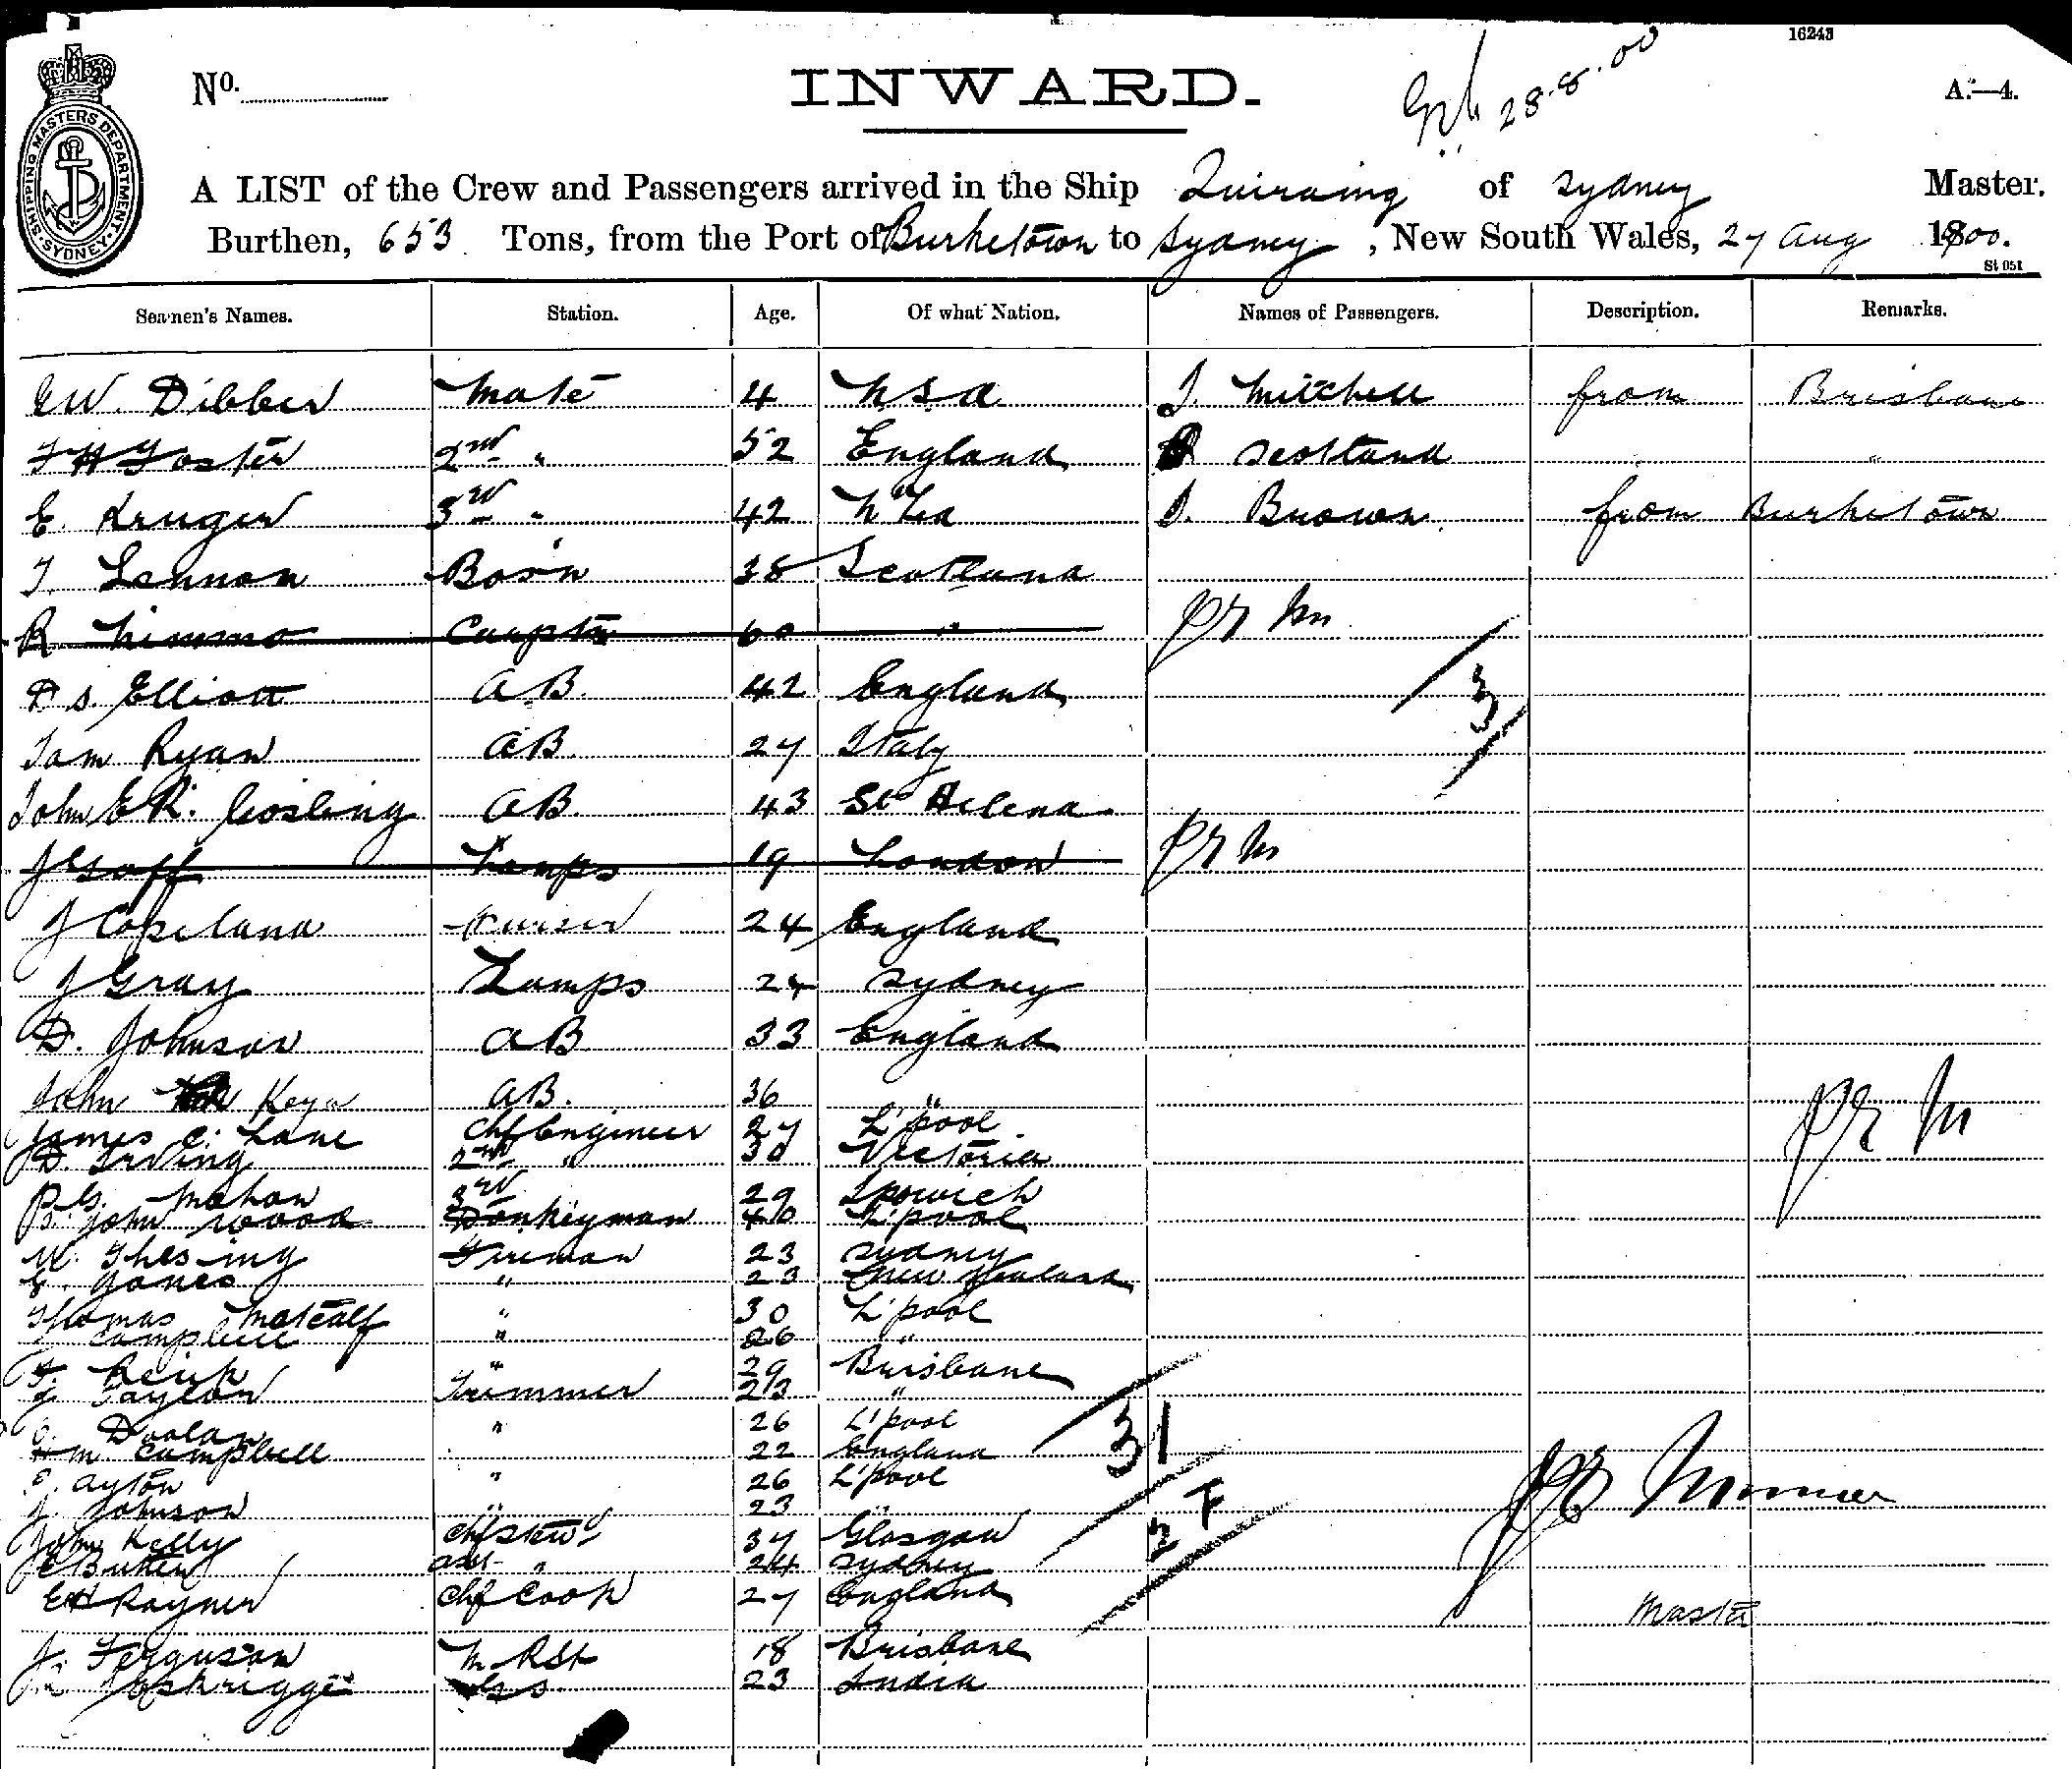 16243
No. INWARD. 28.8.00 A.—4.
SHIPPING MASTERS DEPARTMENT SYDNEY
A LIST of the Crew and Passengers arrived in the Ship Quiraing of Sydney Master.
Burthen, 653 Tons, from the Port of Burketown to Sydney, New South Wales, 27 Aug 1900.
St 051
Seamen's Names. Station. Age. Of what Nation. Names of Passengers. Description. Remarks.
EW. Dibber Mate 4 USA J. Mitchell from Brisbane
F H Foster 2nd " 52 England Scotland "
E. Kruger 3rd " 42 from Burketown Brown
T. Lennon Bos'n 38 Scotland
R Nimmo 60 "
D S. Elliott AB. 42 England 3
Tom Ryan AB. 27 Italy
John E R. Gosling AB. 43 St Helena
J Goff Lamps 19 London
J Copeland 24 England
J Gray Lamps 24 Sydney
D. Johnson AB 33 England
John Keya AB. 36 "
James C. Lane Chf Engineer 27 L'pool
D. Irving 2nd " 30 Victoria
P. G. Mahon 3rd 29 Ipswich
John Wood Donkeyman 40 L'pool
Fireman 23 Sydney
E. Jones " 23 New Zealand
Thomas Metcalf " 30 L'pool
Campbell " 26 "
" 29 Brisbane
Taylor Trimmer 23 "
Doolan " 26 L'pool 31
H M Campbell 22 England
E. Ayton " 26 L'pool
J. Johnson " 23 "
John Kelly Chf Stewd 37 Glasgow
asst " 24 Sydney
EH Rayner Chf Cook 27 England Master
J. Ferguson M R St 18 Brisbane
23 India